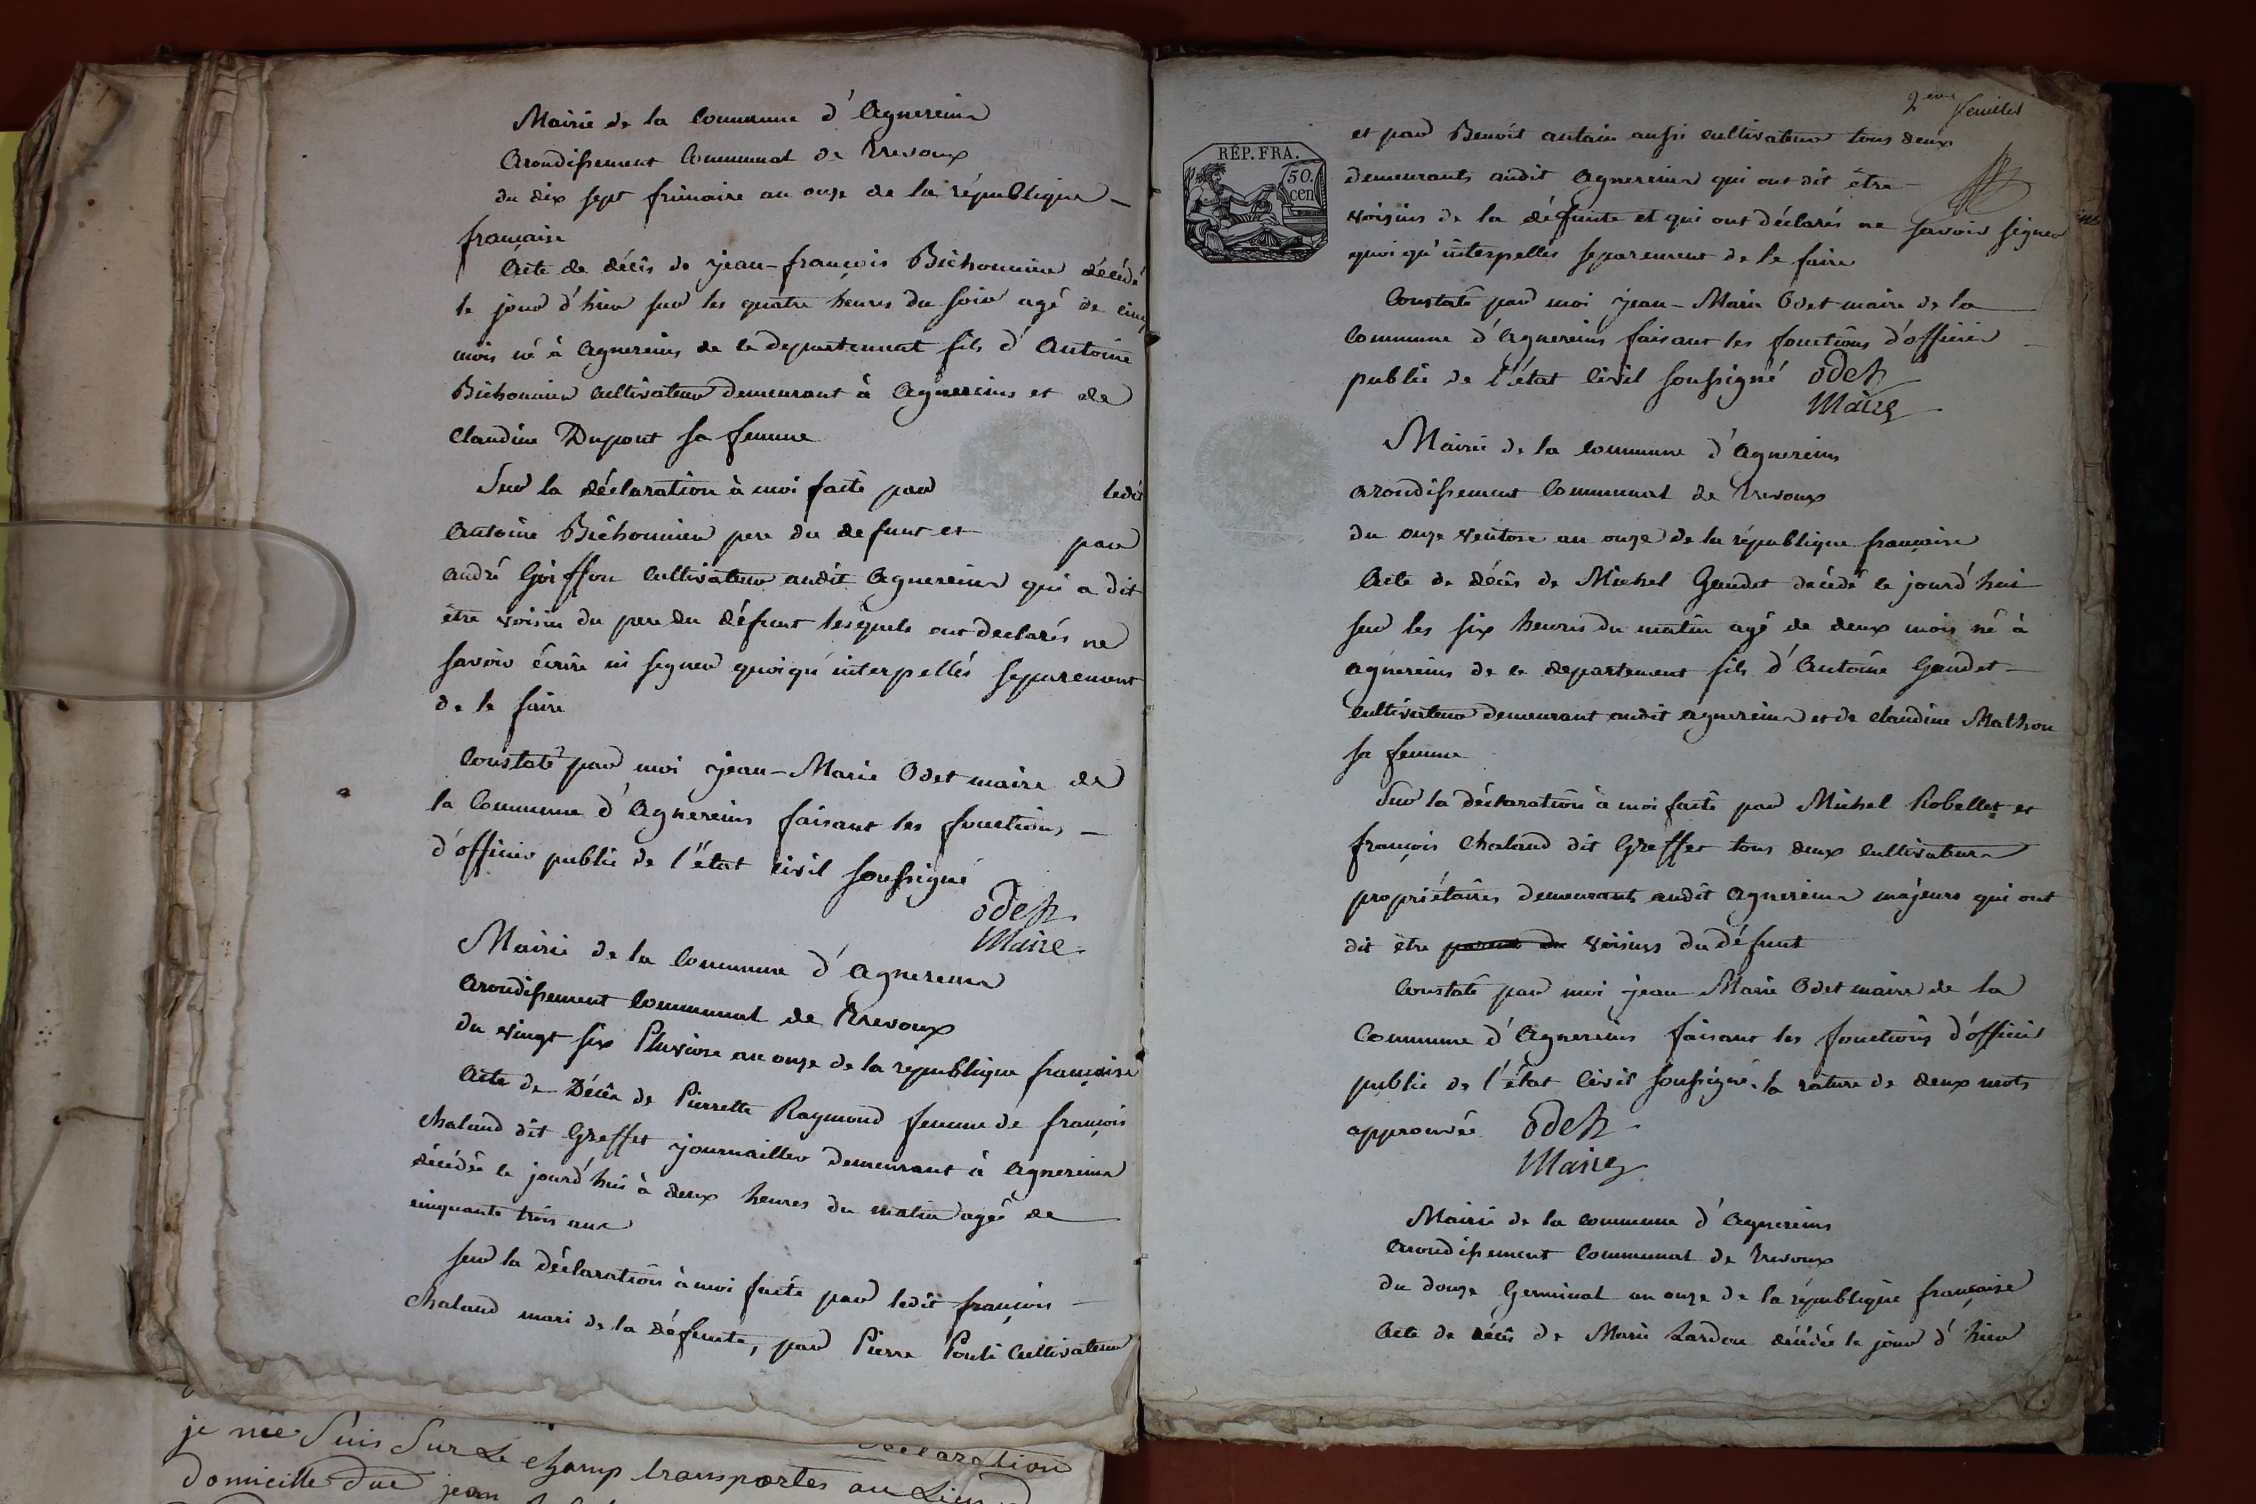 Mairie de la Commune d'Agnereins
Arondissement Communal de Trevoux
du dix sept frimaire an onze de la république
francaise
Acte de décès de jean-françois Bichonnier décédé
le jour d'hier sur les quatre heures du soir agé de cinq
mois né à Agnereins de ce departement fils d'Antoine
Bichonnier Cultivateur demeurant à Agnereins et de
Claudine Dupont sa femme
Sur la déclaration à moi faite par ledit
Antoine Bichonnier pere du defunt et par
andré Goiffon Cultivateur audit Agnereins qui a dit
être voisin du pere du défunt lesquels ont declarés ne
savoir écrire ni signer quoiqu'interpellés separement
de le faire
Constaté par moi jean-Marie Odet maire de
la Commune d'Agnereins faisant les fonctions
d'officier public de l'état civil soussigné
Odet
Maire
Mairie de la Commune d'Agnereins
Arondissement Communal de Trevoux
du vingt six Pluviose an onze de la république française
Acte de Décès de Pierrette Raymond femme de françois
Chaland dit Greffet journaillier demeurant à Agnereins
décédée le jourd'hui à deux heures du matin agée de
cinquante trois ans
Sur la déclaration à moi faite par ledit françois
Chaland mari de la défunte, par Pierre Cultivateur
2eme feuillet
et par Benoit antain aussi cultivateur tous deux
demeurants audit Agnereins qui ont dit être
voisins de la défunte et qui ont déclarés ne savoir signer
quoiqu'interpellés separement de le faire
RÉP. FRA.
50 cen
Constaté par moi jean-Marie Odet maire de la
Commune d'Agnereins faisant les fonctions d'officier
public de l'état Civil soussigné Odet
Maire
Mairie de la Commune d'Agnereins
Arondissement Communal de Trevoux
du onze ventose an onze de la république française
Acte de décès de Michel Gaudet decédé le jourd'hui
sur les six heures du matin agé de deux mois né à
agnereins de ce departement fils d'Antoine Gaudet
Cultivateur demeurant audit agnereins et de Claudine Mathon
sa femme
Sur la déclaration à moi faite par Michel Robellet et
françois Chaland dit Greffet tous deux Cultivateurs
propriétaires demeurants audit Agnereins majeurs qui ont
dit être parents du voisins du défunt
Constaté par moi jean Marie Odet maire de la
Commune d'Agnereins faisant les fonctions d'officier
public de l'état Civil soussigné la rature de deux mots
approuvée Odet
Maire
Mairie de la Commune d'Agnereins
Arondissement Communal de Trevoux
du douze Germinal an onze de la république française
Acte de décès de Marie Lardon décédée le jour d'hier
déclaration
je me suis sur le champ transportés au Lieu
domicille due jean